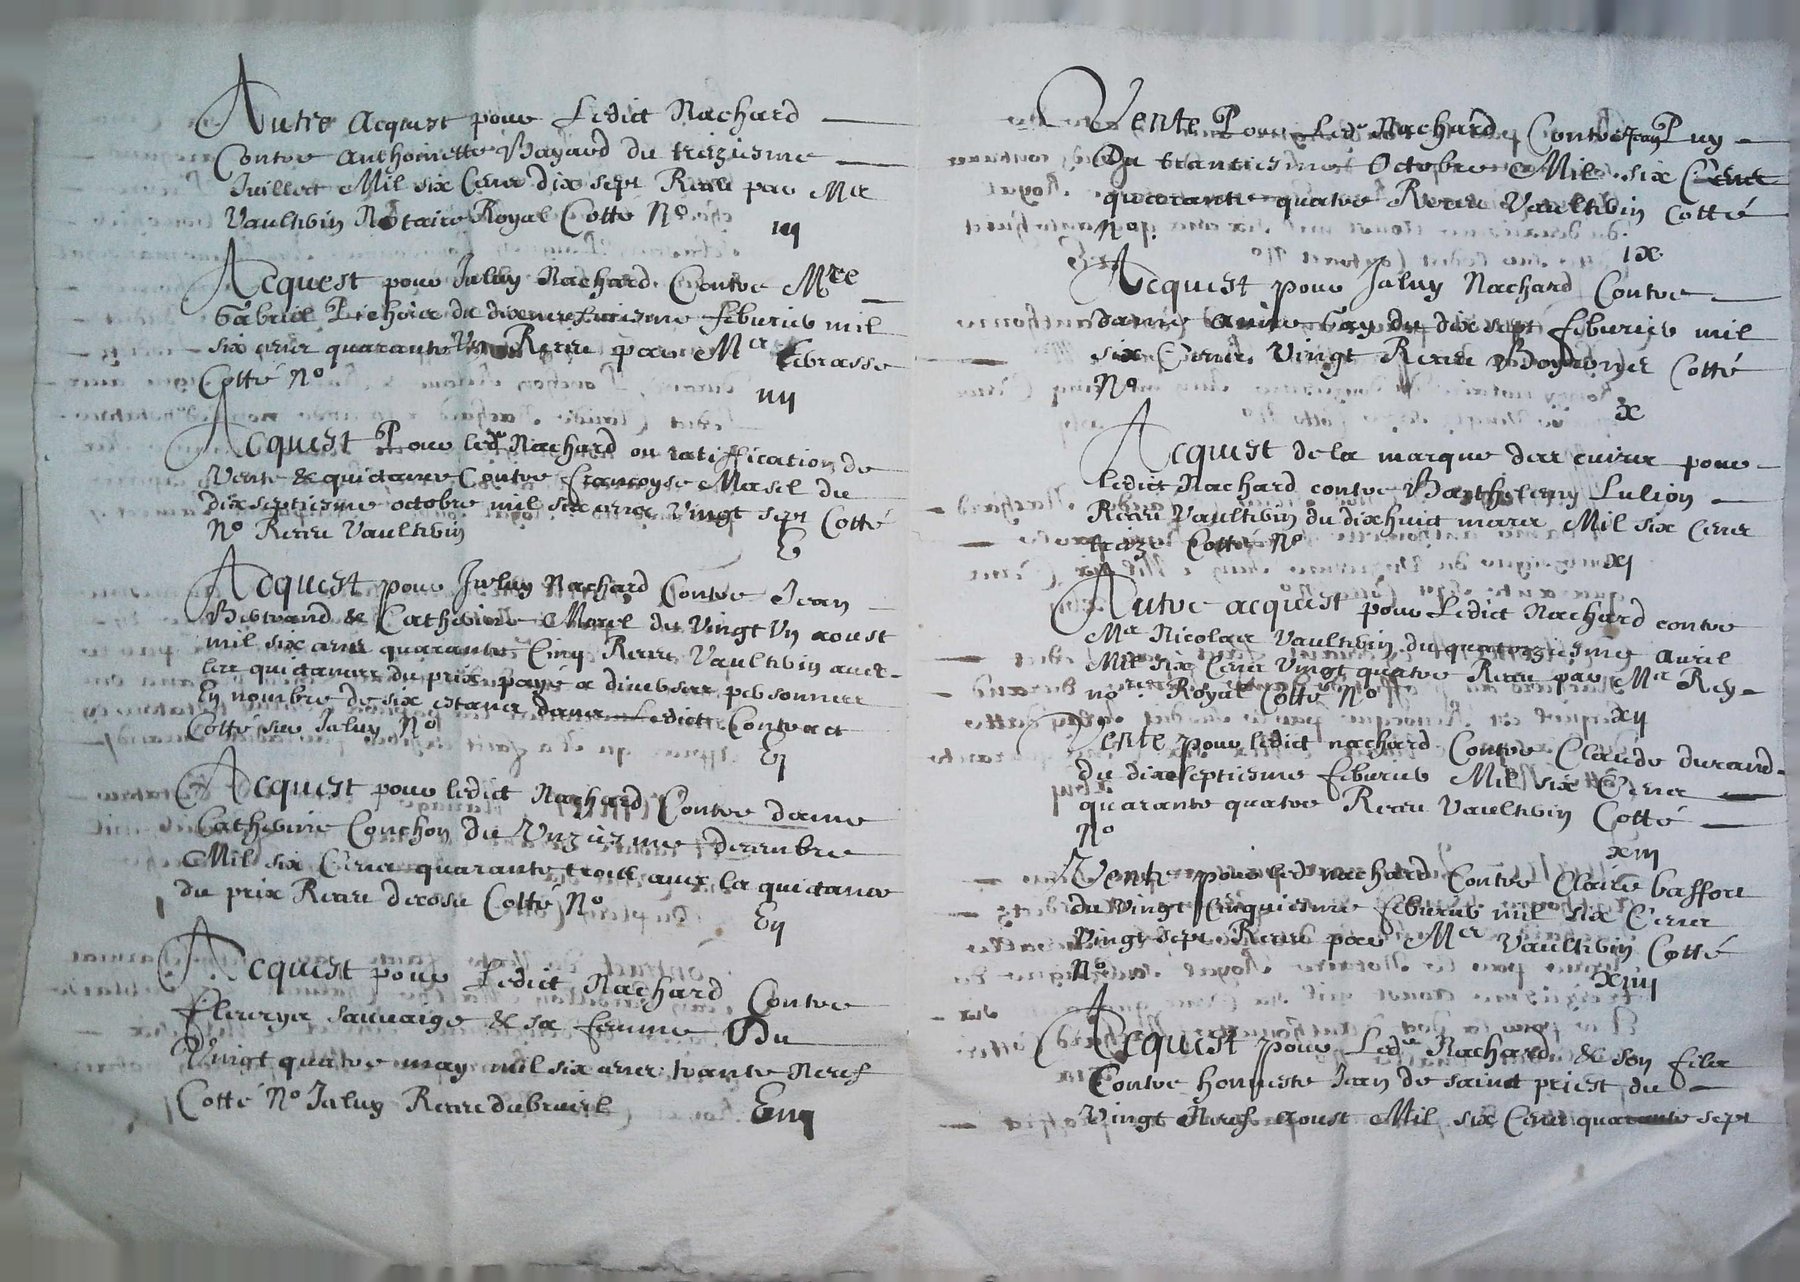 Autre acquist pour Ledict Nachard
Contre anthoinette Bayard du treziesme
Juillert Mil six Cens dix sept Receu par Me
Vaultvin Notaire Royal Cotté No
iij
Acquest pour Jaluy Nachard Contre Mre
Gabriel du feburier mil
six cens quarante Un Receu par Mer Lebrasse
Cotté No
iiij
Acquist Pour led Nachard ou ratiffication de
Vente & quictance Contre francoyse Masel du
dixseptiesme octobre mil six cens Vingt sept Cotté
No Receu Vaultvin
V
Acquest pour Jaluy Nachard Contre Jean
Bertrand & Catherine Morel du Vingt Un aoust
mil six cens quarante Cinq Receu Vaultvin avec
les quictances du prix payé a diverses personnes
En nombre de six estans dans Ledict Contract
Cotté sur Jaluy No
Vj
Acquest pour ledict Nachard Contre dame
Catherine Conchon du Unziesme decembre
Mil six Cens quarante troist avec la quictance
du prix Receu Cotté No
Vij
Acquist pour Ledict Nachard Contre
fleurye sauvaige & sa femme Du
Vingt quatre may mil six cens trante Neuf
Cotté No Jaluy Receu dubrueil
Viij
Vente Pour Led Nachard Contre Jean Puy
Du trantiesme Octobre Mil six Cens
quarante quatre Receu Vaultvin Cotté
No
ix
Acquist pour Jaluy Nachard Contre
dame Gay du dix sept feburier mil
six Cens Vingt Receu Cotté
No
x
Acquist de la marque des cuirs pour
ledict Nachard contre Barthelemy Lulion
Receu Vaultvin du dixhuict mars Mil six Cens
treze Cotté No
xi
Autre acquist pour Ledict Nachard contre
Me Nicolas Vaultvin du quatorziesme avril
Mil six Cens Vingt quatre Receu par Me Rey
nore Royal Cotté No
xij
Vente pour ledict nachard Contre Claude durand
du dixseptiesme feburier Mil six Cens
quarante quatre Receu Vaultvin Cotté
No
xiij
Vente pour led nachard Contre Claude baffore
du Vingt Cinquiesme feburier mil six Cens
Vingt sept Receu par Mer Vaultvin Cotté
No
xiiij
Acquist pour Led Nachard & son filx
Contre honneste Jean de sainct priest du
Vingt Neuf aoust Mil six Cens quarante sept